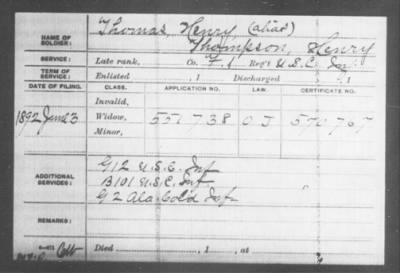 NAME OF SOLDIER: Thomas, Henry (alias)
Thompson, Henry
SERVICE: Late rank, Co. F. 1 Reg't U.S.C. Inf
TERM OF SERVICE: Enlisted , 1 Discharged , 1
DATE OF FILING. CLASS. APPLICATION NO. LAW. CERTIFICATE NO.
Invalid,
1892 June 3 Widow, 551738 O.J 570767
Minor,
ADDITIONAL SERVICES: G 12 U.S.C. Inf
B 101 U.S.C. Inf
G 2 Ala. Col'd Inf
REMARKS:
Died , 1 , at